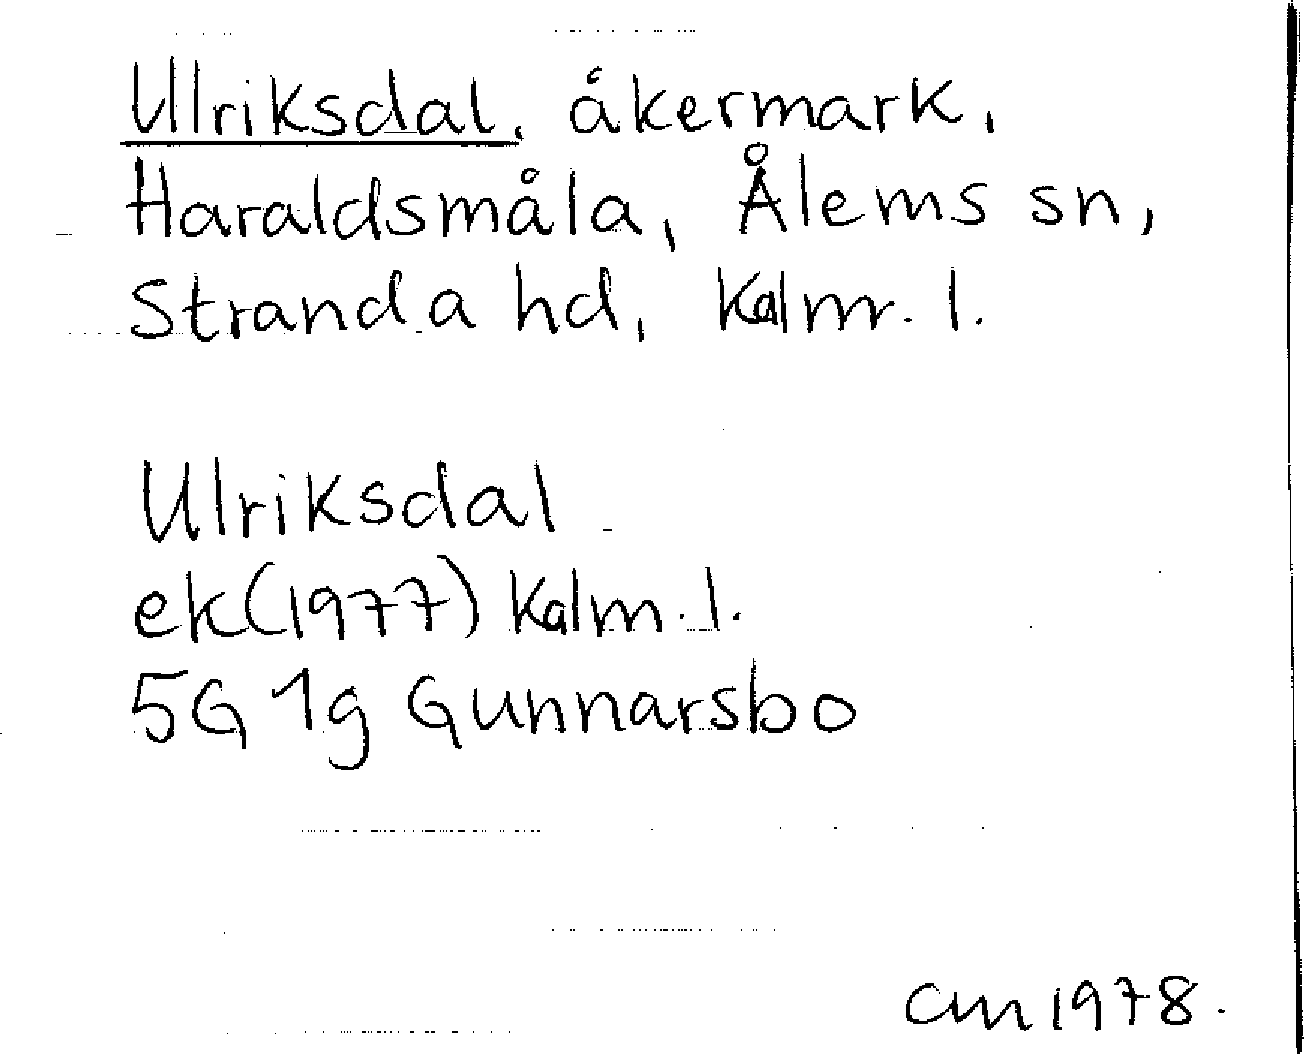 Ulriksdal, åkermark,
Haraldsmåla, Ålems sn,
Stranda hd, Kalmr. l.
Ulriksdal
ek(1977) Kalm. l.
5G 1g Gunnarsbo
CM 1978.